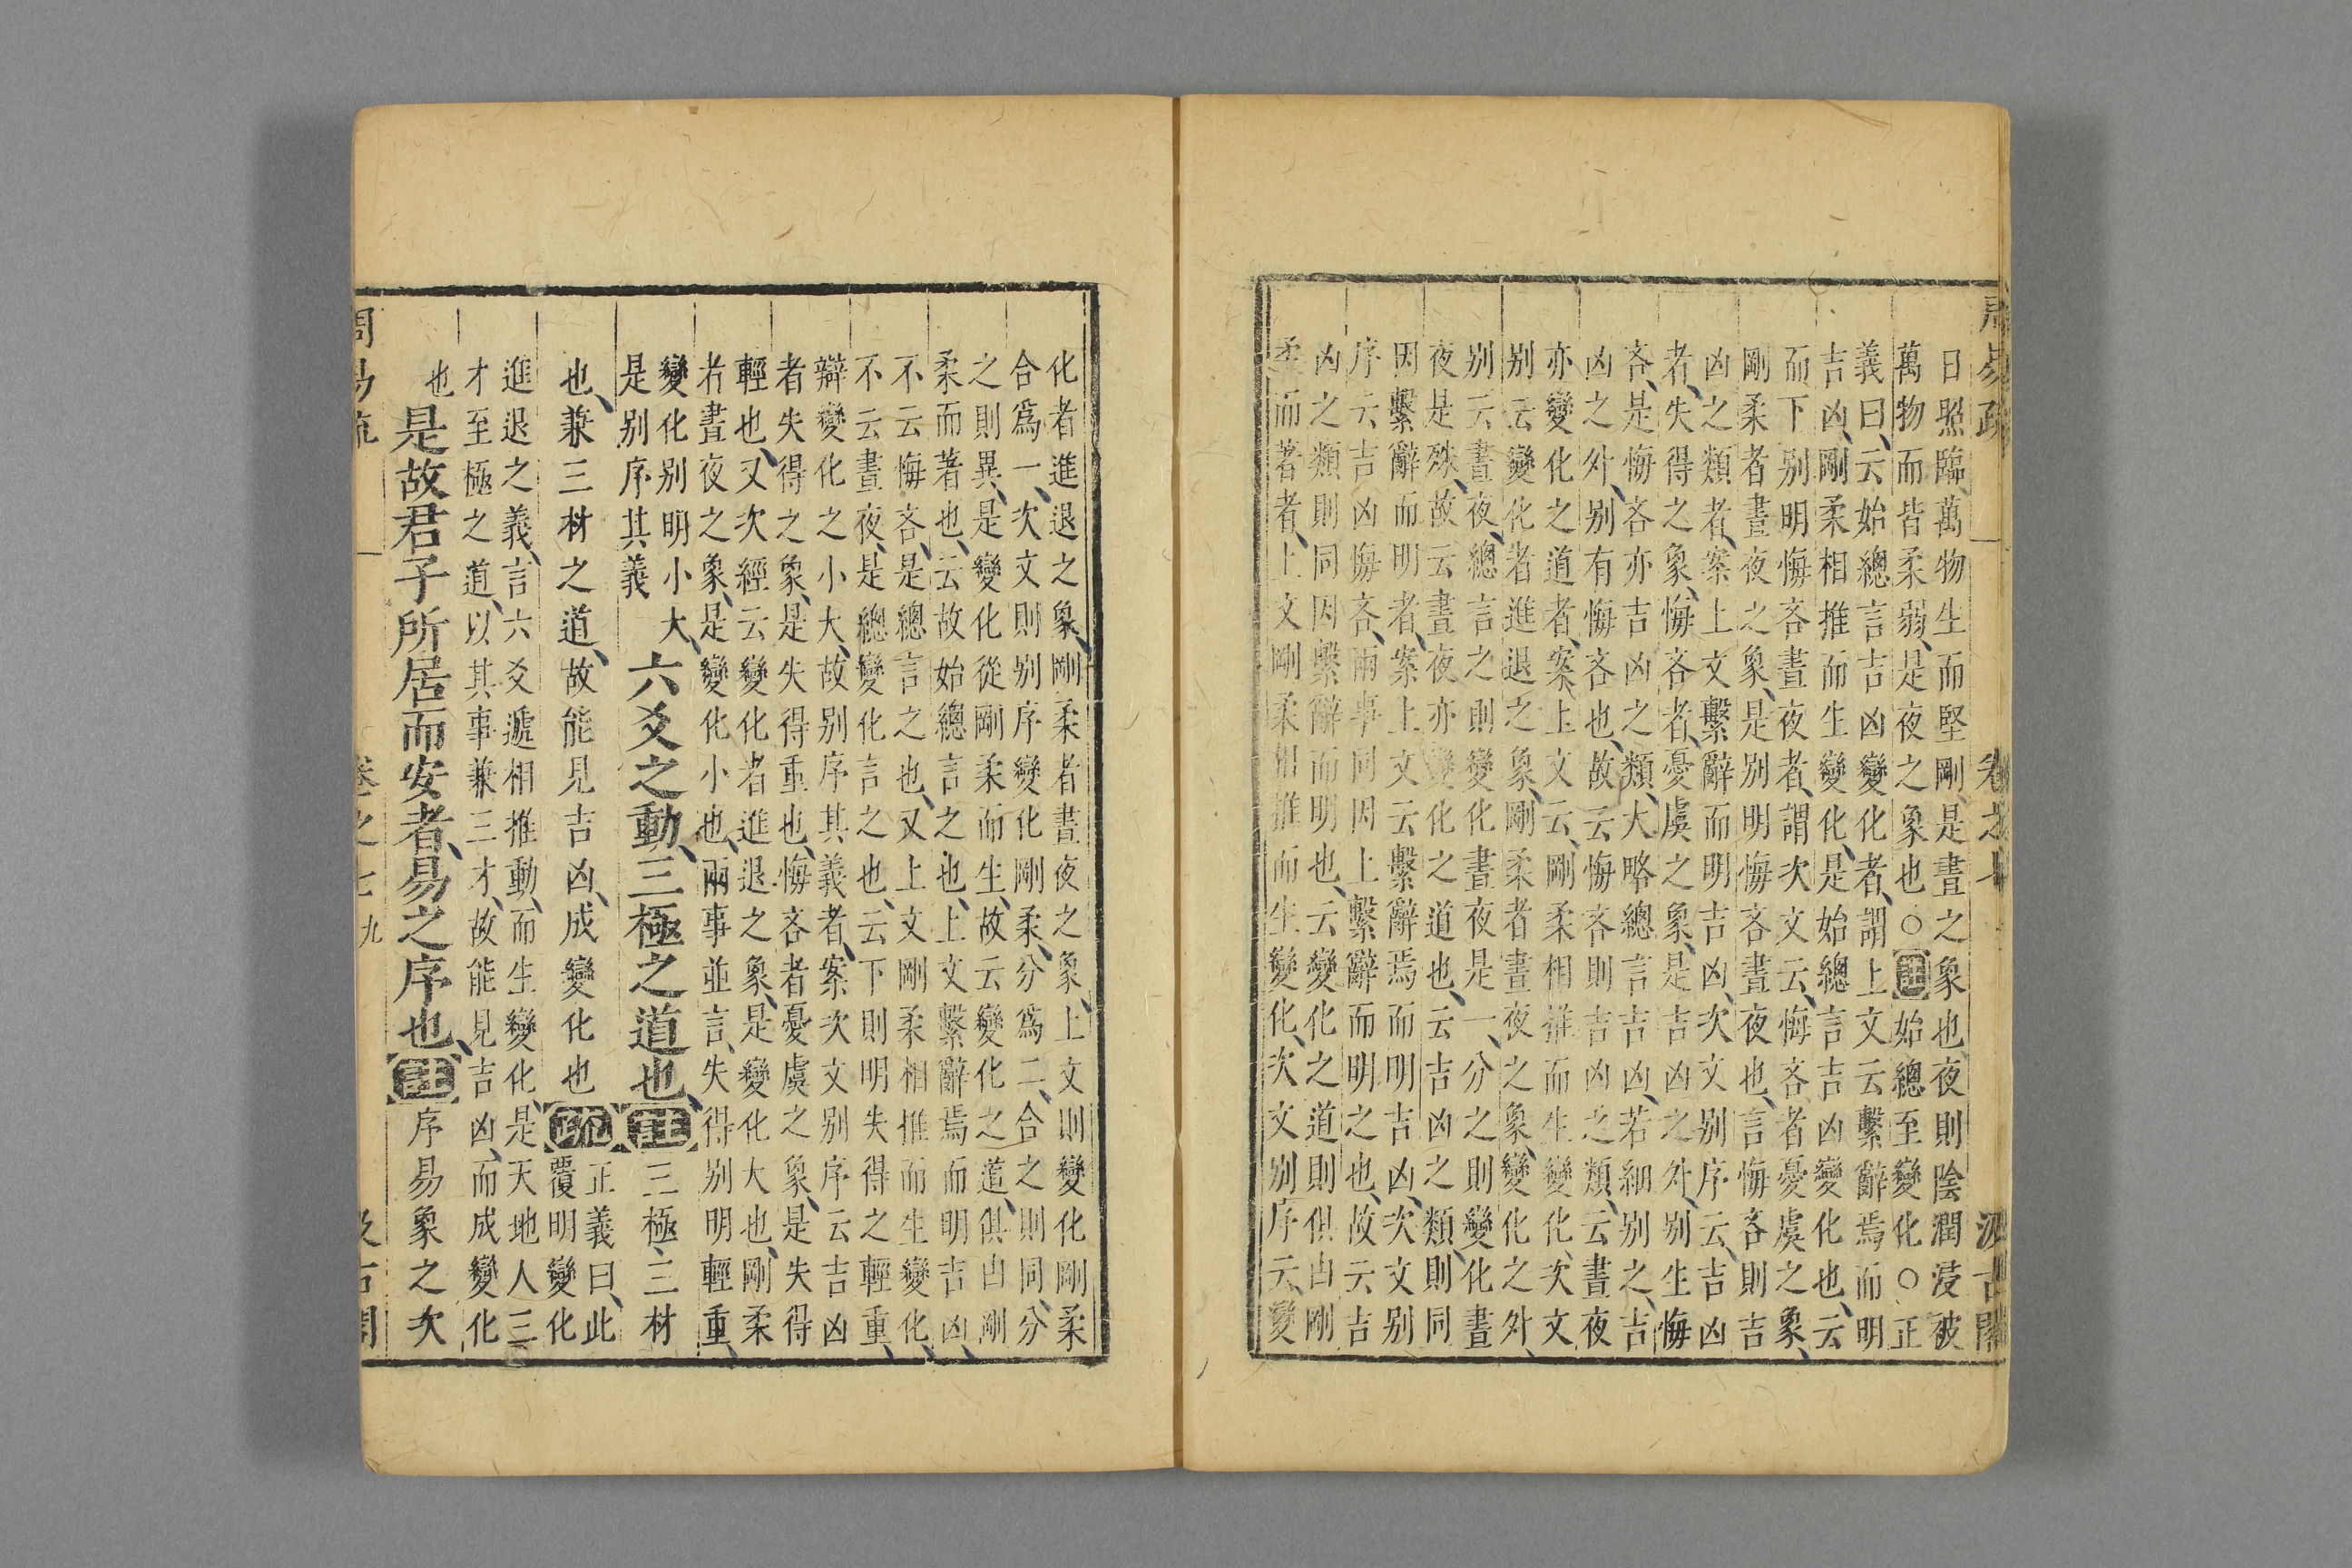 周易疏　卷之七　汲古閣
日照臨萬物生而堅剛是晝之象也夜則陰潤浸被
萬物而皆柔弱是夜之象也○註始總至變化○正
義曰、云始總言吉凶變化者、謂上文云繫辭焉而明
吉凶、剛柔相推而生變化、是始總言吉凶變化也、云
而下别明悔吝晝夜者、謂次文云、悔吝者憂虞之象、
剛柔者晝夜之象、是别明悔吝晝夜也、言悔吝則吉
凶之類者、案上文繫辭而明吉凶、次文别序云、吉凶
者、失得之象、悔吝者、憂虞之象、是吉凶之外、别生悔
吝、是悔吝亦吉凶之類、大略總言吉凶、若細别之、吉
凶之外、别有悔吝也、故云悔吝則吉凶之類、云晝夜
亦變化之道者、案上文云、剛柔相推而生變化、次文
别云變化者進退之象、剛柔者晝夜之象、變化之外、
别云晝夜、總言之則變化晝夜是一、分之則變化晝
夜是殊、故云晝夜亦變化之道也、云吉凶之類、則同
因繫辭而明者、案上文云繫辭焉而明吉凶、次文别
序云吉凶悔吝、兩事同因上繫辭而明之也、故云吉
凶之類則同因繫辭而明也、云變化之道則俱由剛
柔而著者、上文剛柔相推而生變化、次文别序云變
化者進退之象、剛柔者晝夜之象、上文則變化剛柔
合爲一、次文則别序變化剛柔、分爲二、合之則同、分
之則異、是變化從剛柔而生、故云變化之道、俱由剛
柔而著也、云故始總言之也、上文繫辭焉而明吉凶、
不云悔吝、是總言之也、又上文剛柔相推而生變化、
不云晝夜、是總變化言之也、云下則明失得之輕重、
辯變化之小大、故别序其義者、案次文别序云吉凶
者失得之象、是失得重也、悔吝者憂虞之象、是失得
輕也、又次經云變化者進退之象、是變化大也、剛柔
者晝夜之象、是變化小也、兩事並言、失得别明輕重、
變化别明小大、
是别序其義
六爻之動、三極之道也、註三極、三材
也、兼三材之道、故能見吉凶、成變化也疏
正義曰、此
覆明變化
進退之義、言六爻遞相推動、而生變化、是天地人三
才至極之道、以其事兼三才、故能見吉凶、而成變化
也
是故君子所居而安者、易之序也、註序易象之次
周易疏　卷之七　九